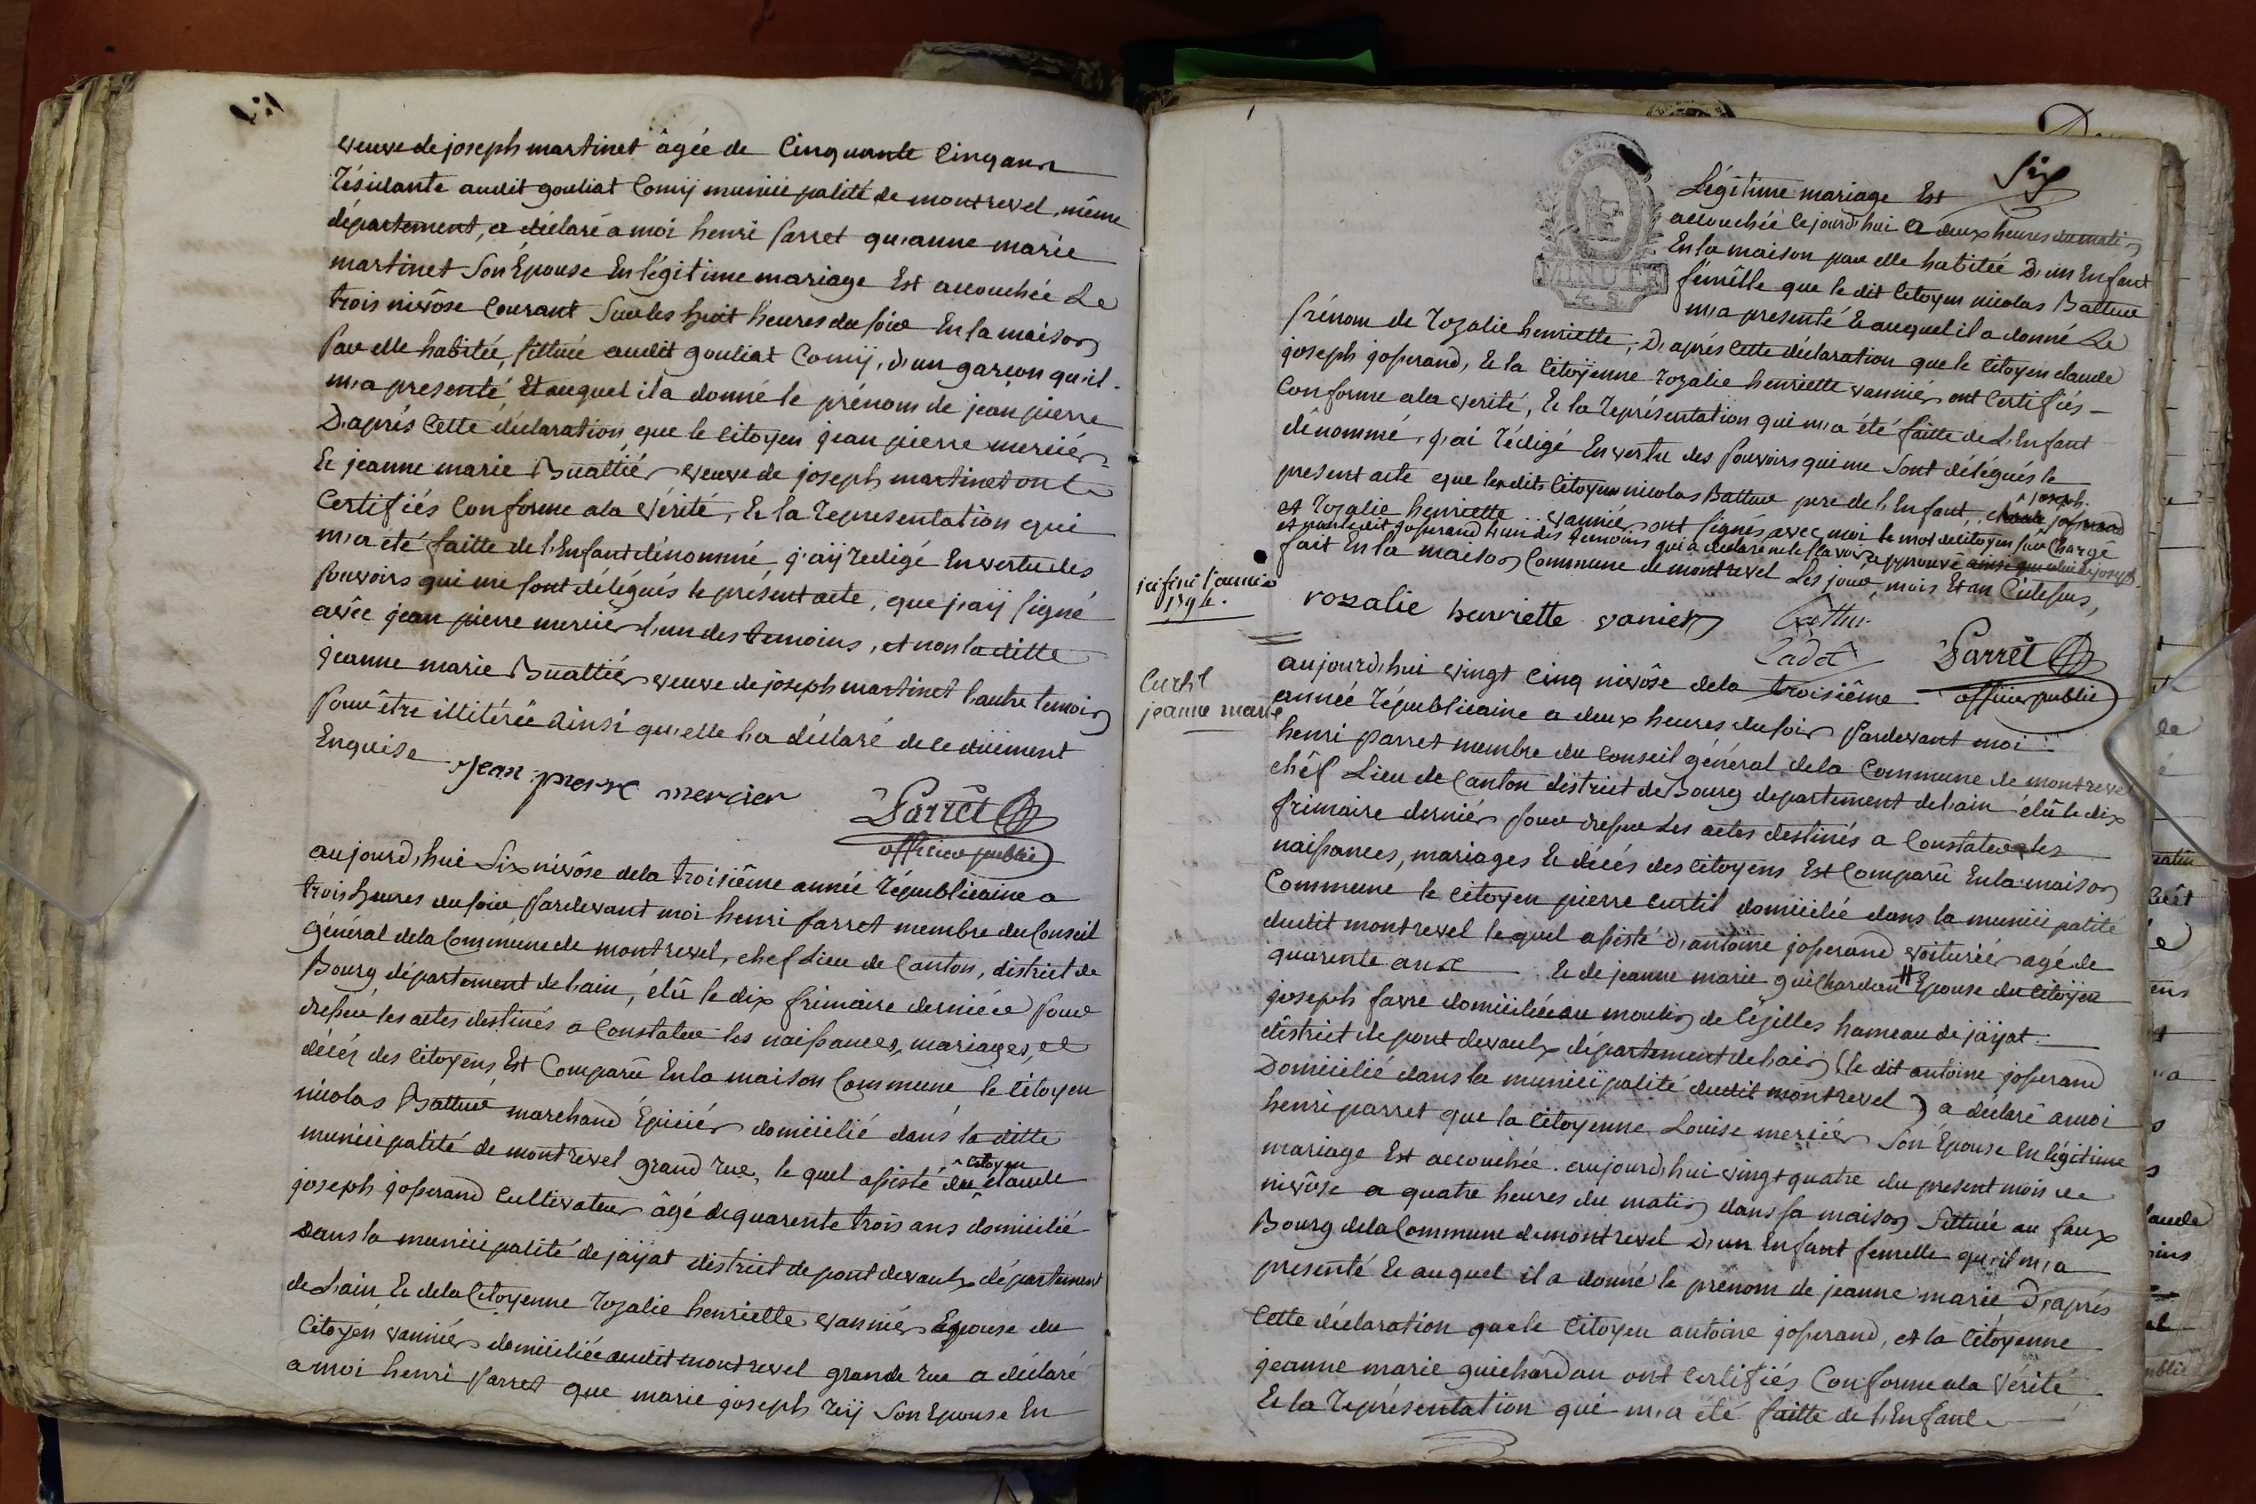 veuve de joseph martinet âgée de Cinquante Cinq ans
résidante audit gouliat Comij municipalité de montrevel, même
département, a déclaré a moi henri parret qu'anne marie
martinet Son Epouse En légitime mariage Est accouchée Le
trois nivôse Courant Sur les huit heures du soir En sa maison
par elle habitée, sittuée audit gouliat Comij, d'un garçon qu'il
m'a presenté, Et auquel il a donné le prénom de jean pierre
D'aprés Cette déclaration, que le Citoyen jean pierre merciér
& jeanne marie Buattiér veuve de joseph martinet ont
Certifiés Conforme a la vérité, & la representation qui
m'a été faitte de l'Enfant dénommé j'aij redigé En vertu des
pouvoirs qui me sont délégués le présent acte, que j'aij signé
avêc jean pierre merciér l'un des temoins, et non la ditte
jeanne marie Buattiér veuve de joseph martinet l'autre temoin
pour être illitérée ainsi qu'elle l'a déclaré de ce düement
Enquise
jean pierre mercier
Parrêt
officier public
aujourd'hui Six nivôse de la troisiême année républicaine a
trois heures du soir pardevant moi henri parret membre du Conseil
général de la Commune de montrevel, chef Lieu de Canton, district de
Bourg département de l'ain, élû le dix frimaire derniér pour
dresser les actes destinés a Constater les naissances, mariages, et
décéz des Citoyens Est Comparû En la maison Commune le Citoyen
nicolas Battur marchand Epiciér domicilié dans la ditte
municipalité de montrevel grand rue, le quel assisté du claude
citoyen
joseph josserand Cultivateur âgé de quarente trois ans domicilié
Dans la municipalité de jaÿat district de pont devaulx département
de L'ain & de la Citoyenne rozalie henriette vanniér Epouse du
Citoyen vanniér domiciliée audit montrevel grande rue a déclaré
a moi henri parret que marie joseph reij Son Epouse En
Six
MINUTE
Légitime mariage Est
accouchée Cejourd'hui a deux heures du matin
En la maison par elle habitée D'un Enfant
fémêlle que le dit Citoyen nicolas Battur
m'a presenté & auquel il a donné Le
prénom de rozalie henriette; D'aprés Cette déclaration que le Citoyen claude
joseph josserand, & la Citoÿenne rozalie henriette vanniér ont Certifiés
Conforme a la verité, & la représentation qui m'a été faitte de L'Enfant
dénommé, j'ai rédigé En vertu des pouvoirs qui me Sont délégués le
present acte que les dits Citoyens nicolas Battur pere de l'Enfant,
joseph
et rozalie henriette vanniér ont signés avec moi le mot de Citoyen sur Chargé
et non le dit josserand l'un des temoins qui a déclaré ne le sçavoir approuvé
fait En la maison Commune de montrevel Les jour, mois Et an Cidessus,
rozalie henriette vanier
Battur
Cadet
Parrêt
officier public
ici fini l'année
1794.
Curtil
jeanne marie
aujourd'hui vingt Cinq nivôse de la troisiême
année républicaine a deux heures du soir pardevant moi
henri parret membre du Conseil général de la Commune de montrevel
chêf Lieu de Canton district de Bourg departement de l'ain élû le dix
frimaire derniér pour dresser Les actes destinés a Constater les
naissances, mariages & décés des Citoyens Est Comparû En la maison
Commune le Citoyen pierre curtil domicilié dans la municipalité
dudit montrevel lequel assisté d'antoine josserand voituriér agé de
quarente ans & de jeanne marie guichardan # Epouse du Citoÿen
joseph favre domiciliée au moulin de Cézilles hameau de jaÿat
district de pont devaulx département de l'ain (le dit antoine josserand
Domicilié dans la municipalité dudit montrevel) a déclaré a moi
henri parret que la Citoyenne Louise merciér Son Epouse En légitime
mariage Est accouchée aujourd'hui vingt quatre du present mois de
nivôse a quatre heures du matin dans sa maison Sittuée au faux
Bourg de la Commune de montrevel D'un Enfant femelle qu'il m'a
presenté & auquel il a donné le prénom de jeanne marie D'aprés
Cette déclaration que le Citoyen antoine josserand, et la Citoyenne
jeanne marie guichardan ont Certifiés Conforme a la Verité
& la représentation qui m'a été faitte de l'Enfant